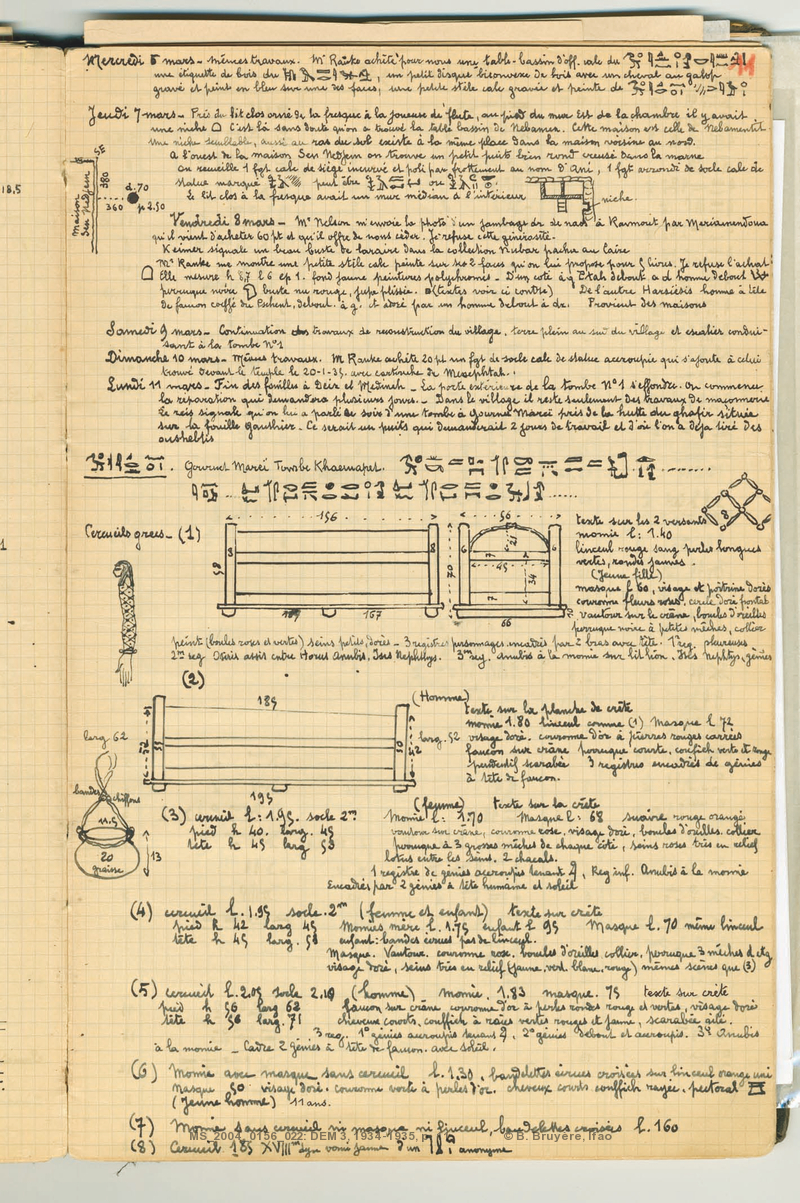 Mercredi 6 mars - mêmes travaux. Mr Ranke achète pour nous une table-bassin d'off. calc. du
une étiquette de bois du , un petit disque biconvexe de bois avec un cheval au galop
gravé et peint en bleu sur une des faces, une petite stèle calc gravée et peinte de
Jeudi 7 mars - Près du lit clos orné de la fresque à la joueuse de flute, au pied du mur Est de la chambre il y avait
une niche C'est là sans doute qu'on a trouvé la table bassin de Nebamen. Cette maison est celle de Nebamentit.
Une niche semblable, aussi au ras du sol existe à la même place dans la maison voisine au nord.
A l'ouest de la maison Sen Nedjem on trouve un petit puits bien rond creusé dans la marne
On recueille 1 fgt calc de siège incurvé et poli par frottement au nom d'Ani, 1 fgt arrondi de socle calc de
statue marqué peut être ou
le lit clos à la fresque avait un mur médian à l'intérieur
niche
Maison Sen Nedjem
380
360
d. 70
p 2.50
18,5
Vendredi 8 mars - Mr Nelson m'envoie la photo d'un jambage dr. de naos à Rannout par Meriamendoua
qu'il vient d'acheter 60 pt et qu'il offre de nous céder. Je refuse cette générosité.
Keimer signale un beau buste de laraire dans la collection Nubar pacha au Caire
Mr Ranke me montre une petite stèle calc peinte sur ses 2 faces qu'on lui propose pour 5 livres. Je refuse l'achat
Elle mesure h 6,7 l 6 ep 1. fond jaune peintures polychromes - D'un coté à g Ptah debout à d homme debout
perruque noire buste nu rouge, jupe plissée. (textes voir ci contre) De l'autre Harsiésis homme à tête
de faucon coiffé du Pschent, debout à g. et adoré par un homme debout à dr. Provient des maisons
Samedi 9 mars - Continuation des travaux de reconstruction du village, terre plein au sud du village et escalier condui-
sant à la tombe N°1
Dimanche 10 mars - Mêmes travaux. Mr Ranke achète 20 pt un fgt de socle calc de statue accroupie qui s'ajoute à celui
trouvé devant le temple le 20-1-35. avec cartouche de Merenphtah.
Lundi 11 mars - Fin des fouilles à Deir el Medineh - La porte extérieure de la tombe N°1 s'effondre. On commence
la réparation qui demandera plusieurs jours. - Dans le village il reste seulement des travaux de maçonnerie
Le reis signale qu'on lui a parlé ce soir d'une tombe à Gournet Mareï près de la hutte du ghafir située
sur la fouille Gauthier - Ce serait un puits qui demanderait 2 jours de travail et d'où l'on a déjà tiré des
oushebtis
. Gournet Mareï Tombe Khaemapet.
Cercueils grecs - (1)
196
58
8
8
189
167
56
70
6
6
21
45
34
66
texte sur les 2 versants
momie l: 1.40
linceul rouge sang perles longues
vertes, rondes jaunes.
(Jeune fille)
masque l 60, visage et poitrine dorés
couronne fleurs roses, cercle doré frontal
vautour sur le crâne, boucles d'oreilles
perruque noire à petites mèches, collier
peint (boules roses et vertes) seins petits, dorés - 3 registres personnages encadrés par 2 bras avec tête. 1er reg. pleureuses
2me reg Osiris assis entre Horus Anubis, Isis Nephthys. 3me reg. Anubis à la momie sur lit lion. Isis Nephtys, génies
(2)
189
195
larg. 52
42
larg 62
bandes
chiffons
11.5
20
graisse
13
(Homme)
texte sur la planche de crête
momie 1.80 linceul comme (1) Masque l 72
visage doré. couronne d'or à pierres rouges carrées
faucon sur crâne perruque courte, couffieh verte et rouge
pendentif scarabée 3 registres encadrés de génies
à tête de faucon.
(3) cercueil l: 1.95. socle 2m
pied h 40. larg. 45
tête h 45 larg 53
(femme) texte sur la crête
Momie l: 1.70 Masque l: 68 suaire rouge orangé
vautour sur crâne, couronne rose, visage doré, boucles d'oreilles. collier
perruque à 3 grosses mèches de chaque côté, seins roses très en relief
lotus entre les seins. 2 chacals.
1 registre de génies accroupis tenant , Reg inf. Anubis à la momie
Encadrés par 2 génies à tête humaine et soleil
(4) cercueil l. 1.95 socle. 2m (femme et enfant) texte sur crête
pied h 42 larg 45 Momies mère l. 1.75 enfant l 95 Masque l. 70 même linceul
tête h 45 larg. 53 enfant: bandes cirées pas de linceul.
Masque. Vautour. couronne rose. boucles d'oreilles collier, perruque 3 mèches d et g
visage doré, seins très en relief (jaune, vert. blanc, rouge) mêmes scènes que (3)
(5) cercueil l. 2.05 socle 2.10 (homme) Momie. 1.83 masque. 75 texte sur crête
pied h 56 larg 62 faucon sur crâne couronne d'or à perles rondes rouge et vertes, visage doré
tête h 56 larg. 71 cheveux courts, couffieh à raies vertes rouges et jaune, scarabée ailé.
3 reg. 1° génies accroupis tenant , 2° génies debout et accroupis. 3° Anubis
à la momie - Cadre 2 génies à tête de faucon. avec soleil.
(6) Momie avec masque sans cercueil l. 1.30, bandelettes cirées croisées sur linceul orange uni
Masque 50 visage doré. couronne verte à perles d'or. cheveux courts couffieh rayée, pectoral
(Jeune homme) 11 ans.
(7) Momie sans cercueil ni masque ni linceul, bandelettes croisées l. 160
(8) Cercueil 185 XVIIIme dyn verni jaune d'un anonyme
MS_2004_0156_022: DEM 3, 1934-1935, © B. Bruyère, Ifao